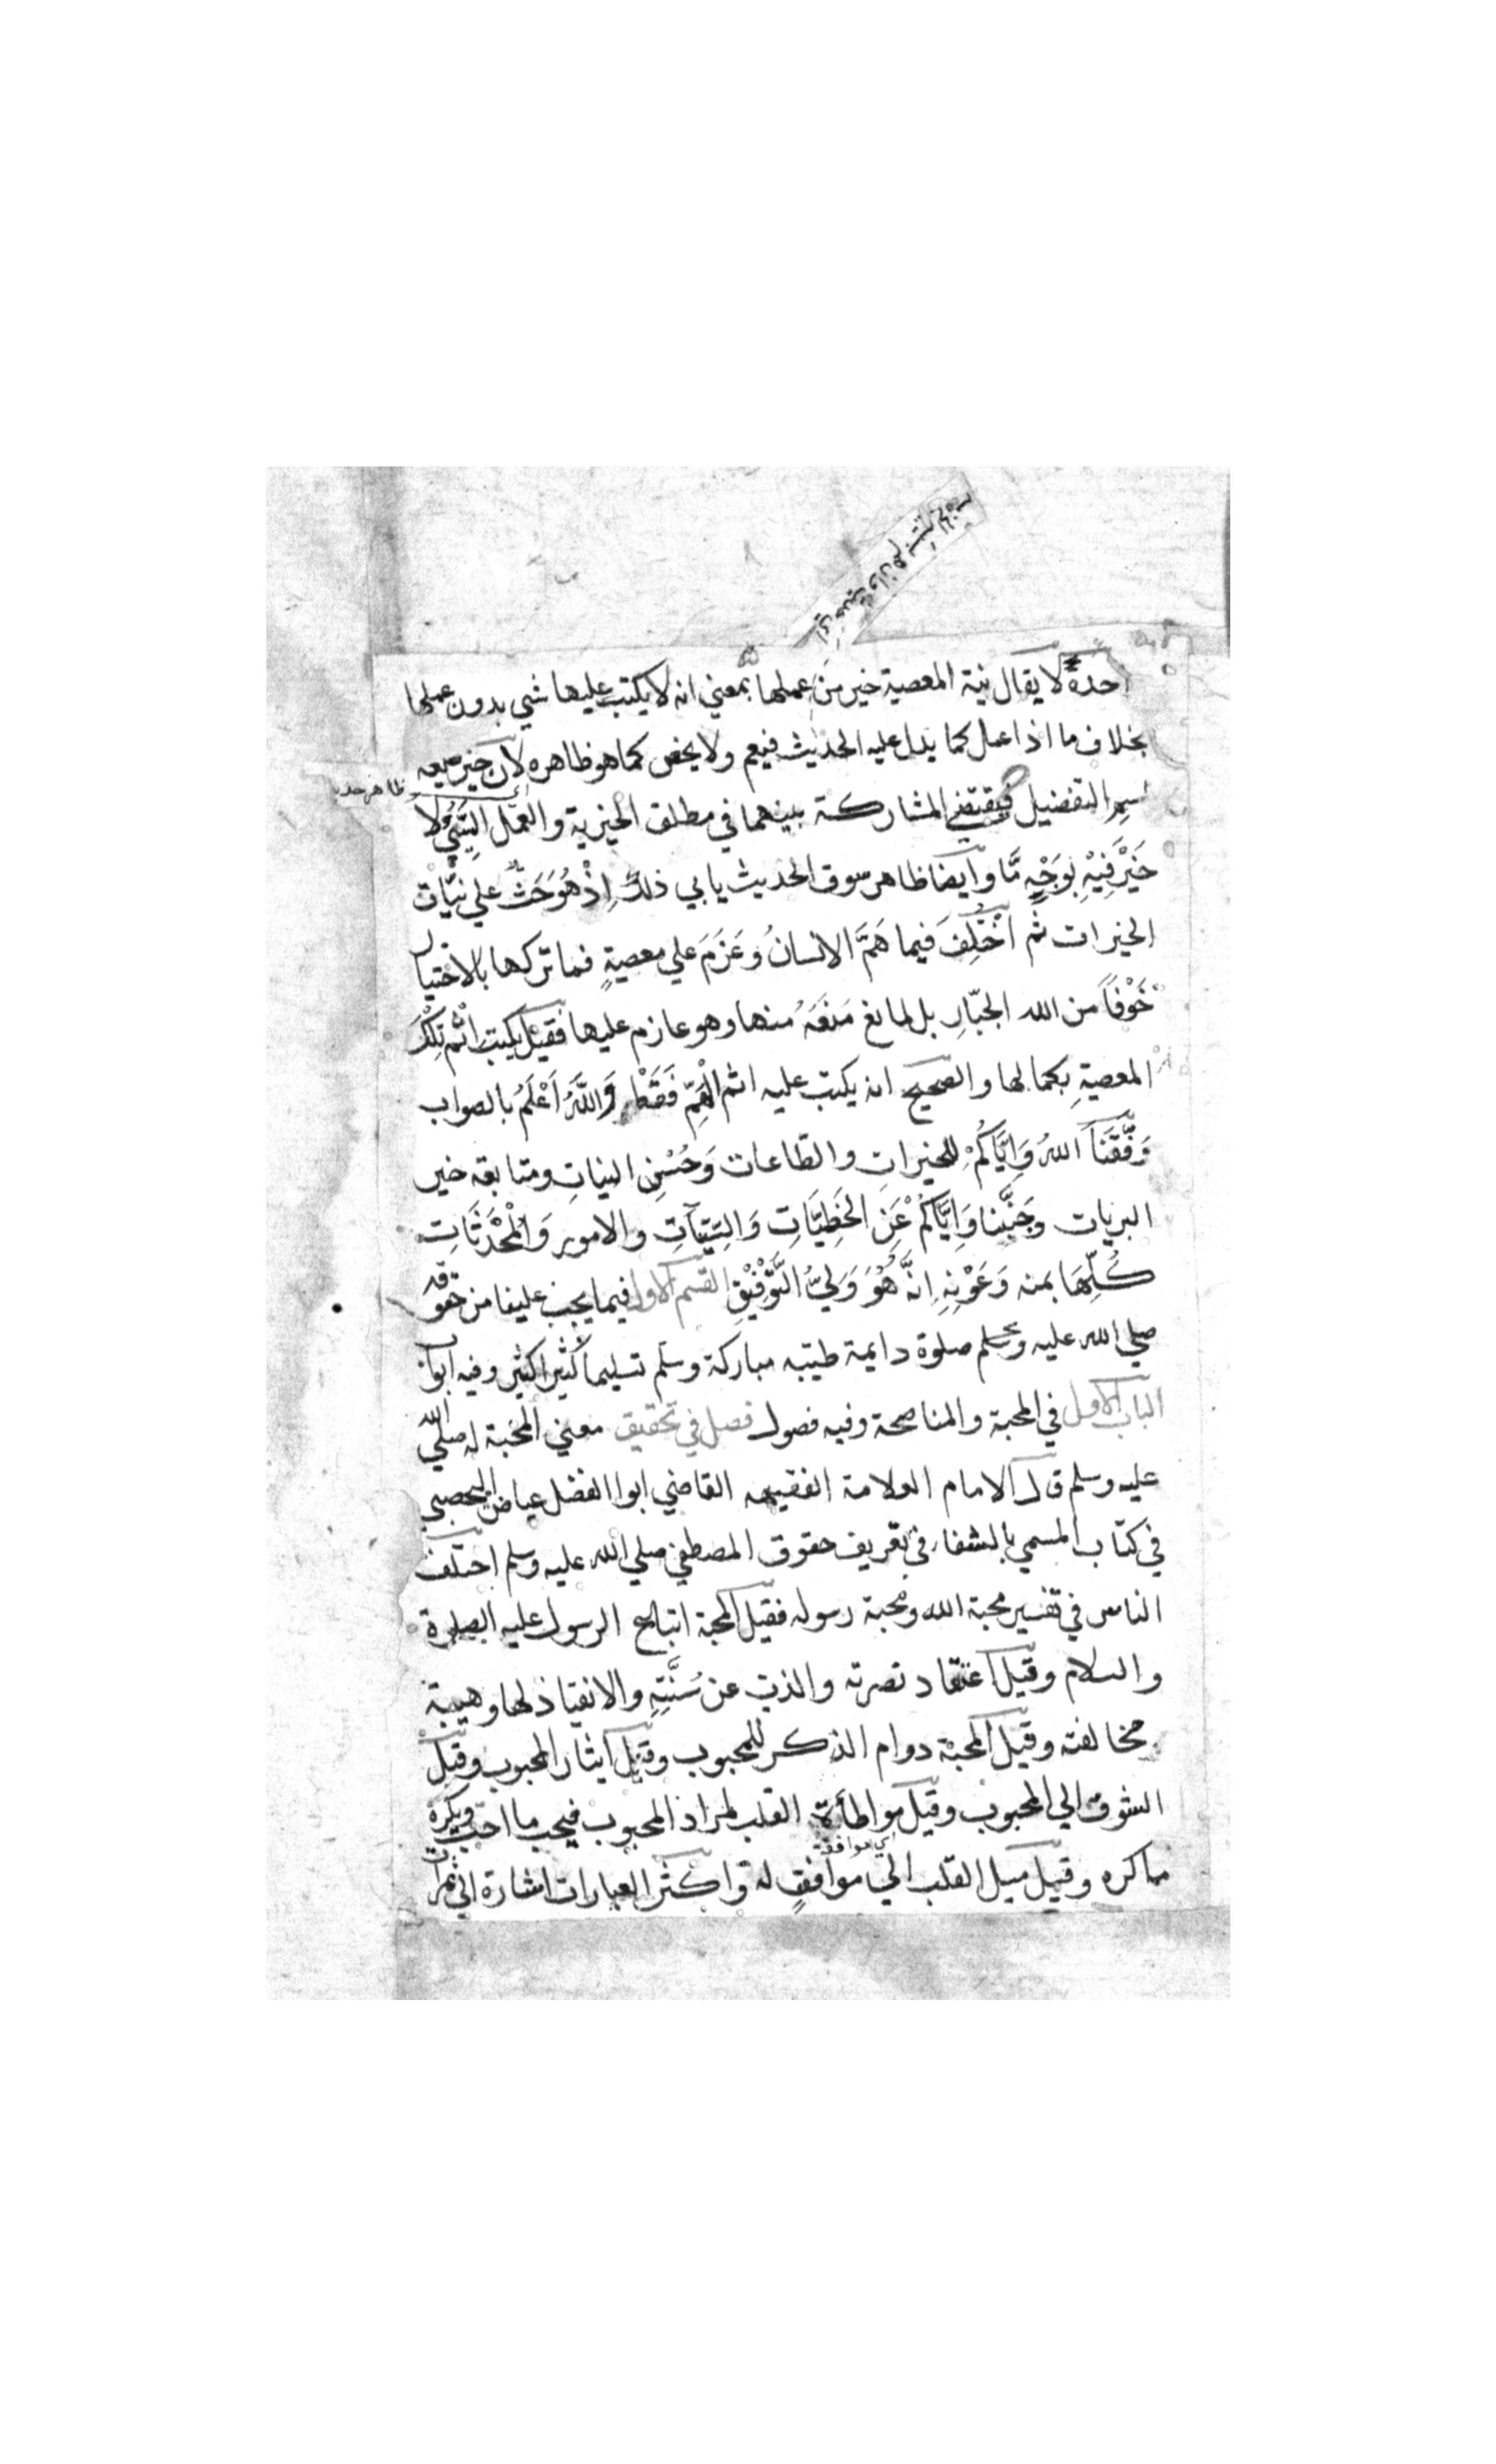 احدة لا يقال نية المعصية خير من عملها بمعني انه لا يكتب عليها شي بدون عملها
بخلاف ما اذا عمل كما يدل عليه الحديث فيعم ولا يخص كما هو ظاهره لان خير صيغه
اسم التفضيل فيقتضي المشاركة بينهما في مطلق الخيرية والعمل السَّيِّئ لا
خَيْرَ فِيْهِ بوَجْهٍ مَّا وايضا ظاهر سوق الحديث يابي ذلك اِذْ هُوَ حَثٌّ علي نِيَّات
الخيرات ثم اخْتُلِفَ فيما هَمَّ الانسانُ وعَزَمَ علي معصيةٍ فما تركها بالاختيار
خَوْفًا من الله الجبّارِ بل لمانع مَنَعَهُ منها وهو عازم عليها فقيل يكتب اثم تلك
المعصيةِ بكمالها والصحيح انه يكتب عليه اثم الْهَمِّ فَقَطْ وَاللّٰهُ اَعْلَمُ بالصواب
وَفَّقَنَا اللهُ وَاِيَّاكُمْ للخيراتِ والطّاعات وَحُسْنِ النياتِ ومتابعة خير
البريات وجَنَّبَنا وَاِيَّاكُمْ عَنِ الخَطِيَّاتِ وَالسَّيِّآتِ والامور وَالْمُحْدَثَاتِ
كُلِّهَا بمنه وَعَوْنِهِ اِنَّهُ هُوَ وَلِيُّ التَّوْفِيْقِ القسم الاول فيما يجب علينا من حقوقه
صلي الله عليه وسلم صلوة دايمة طيبه مباركة وسلم تسليما كثيرا كثيرا وفيه ابواب
الباب الاول في المحبة والمناصحة وفيه فصول فصل في تحقيق معني المحبة له صلي الله
عليه وسلم قال الامام العلامة الفقيه القاضي ابوا الفضل عياض اليحصبي
في كتاب المسمي بالشفا في تعريف حقوق المصطفي صلي الله عليه وسلم اختلف
الناس في تفسير محبة الله ومحبة رسوله فقيل المحبة اتباع الرسول عليه الصلوة
والسلام وقيل اعتقاد نصرته والذب عن سُنَّتِهِ والانقياد لها وهيبة
مخالفته وقيل المحبة دوام الذكر للمحبوب وقيل ايثار المحبوب وقيل
الشوق الي المحبوب وقيل مواطأة القلب لمراد المحبوب فيحب ما احب ويكره
ما كره وقيل ميل القلب الي موافقٍ له واكثر العبارات اشارة الي ثمرات
اي موافقة